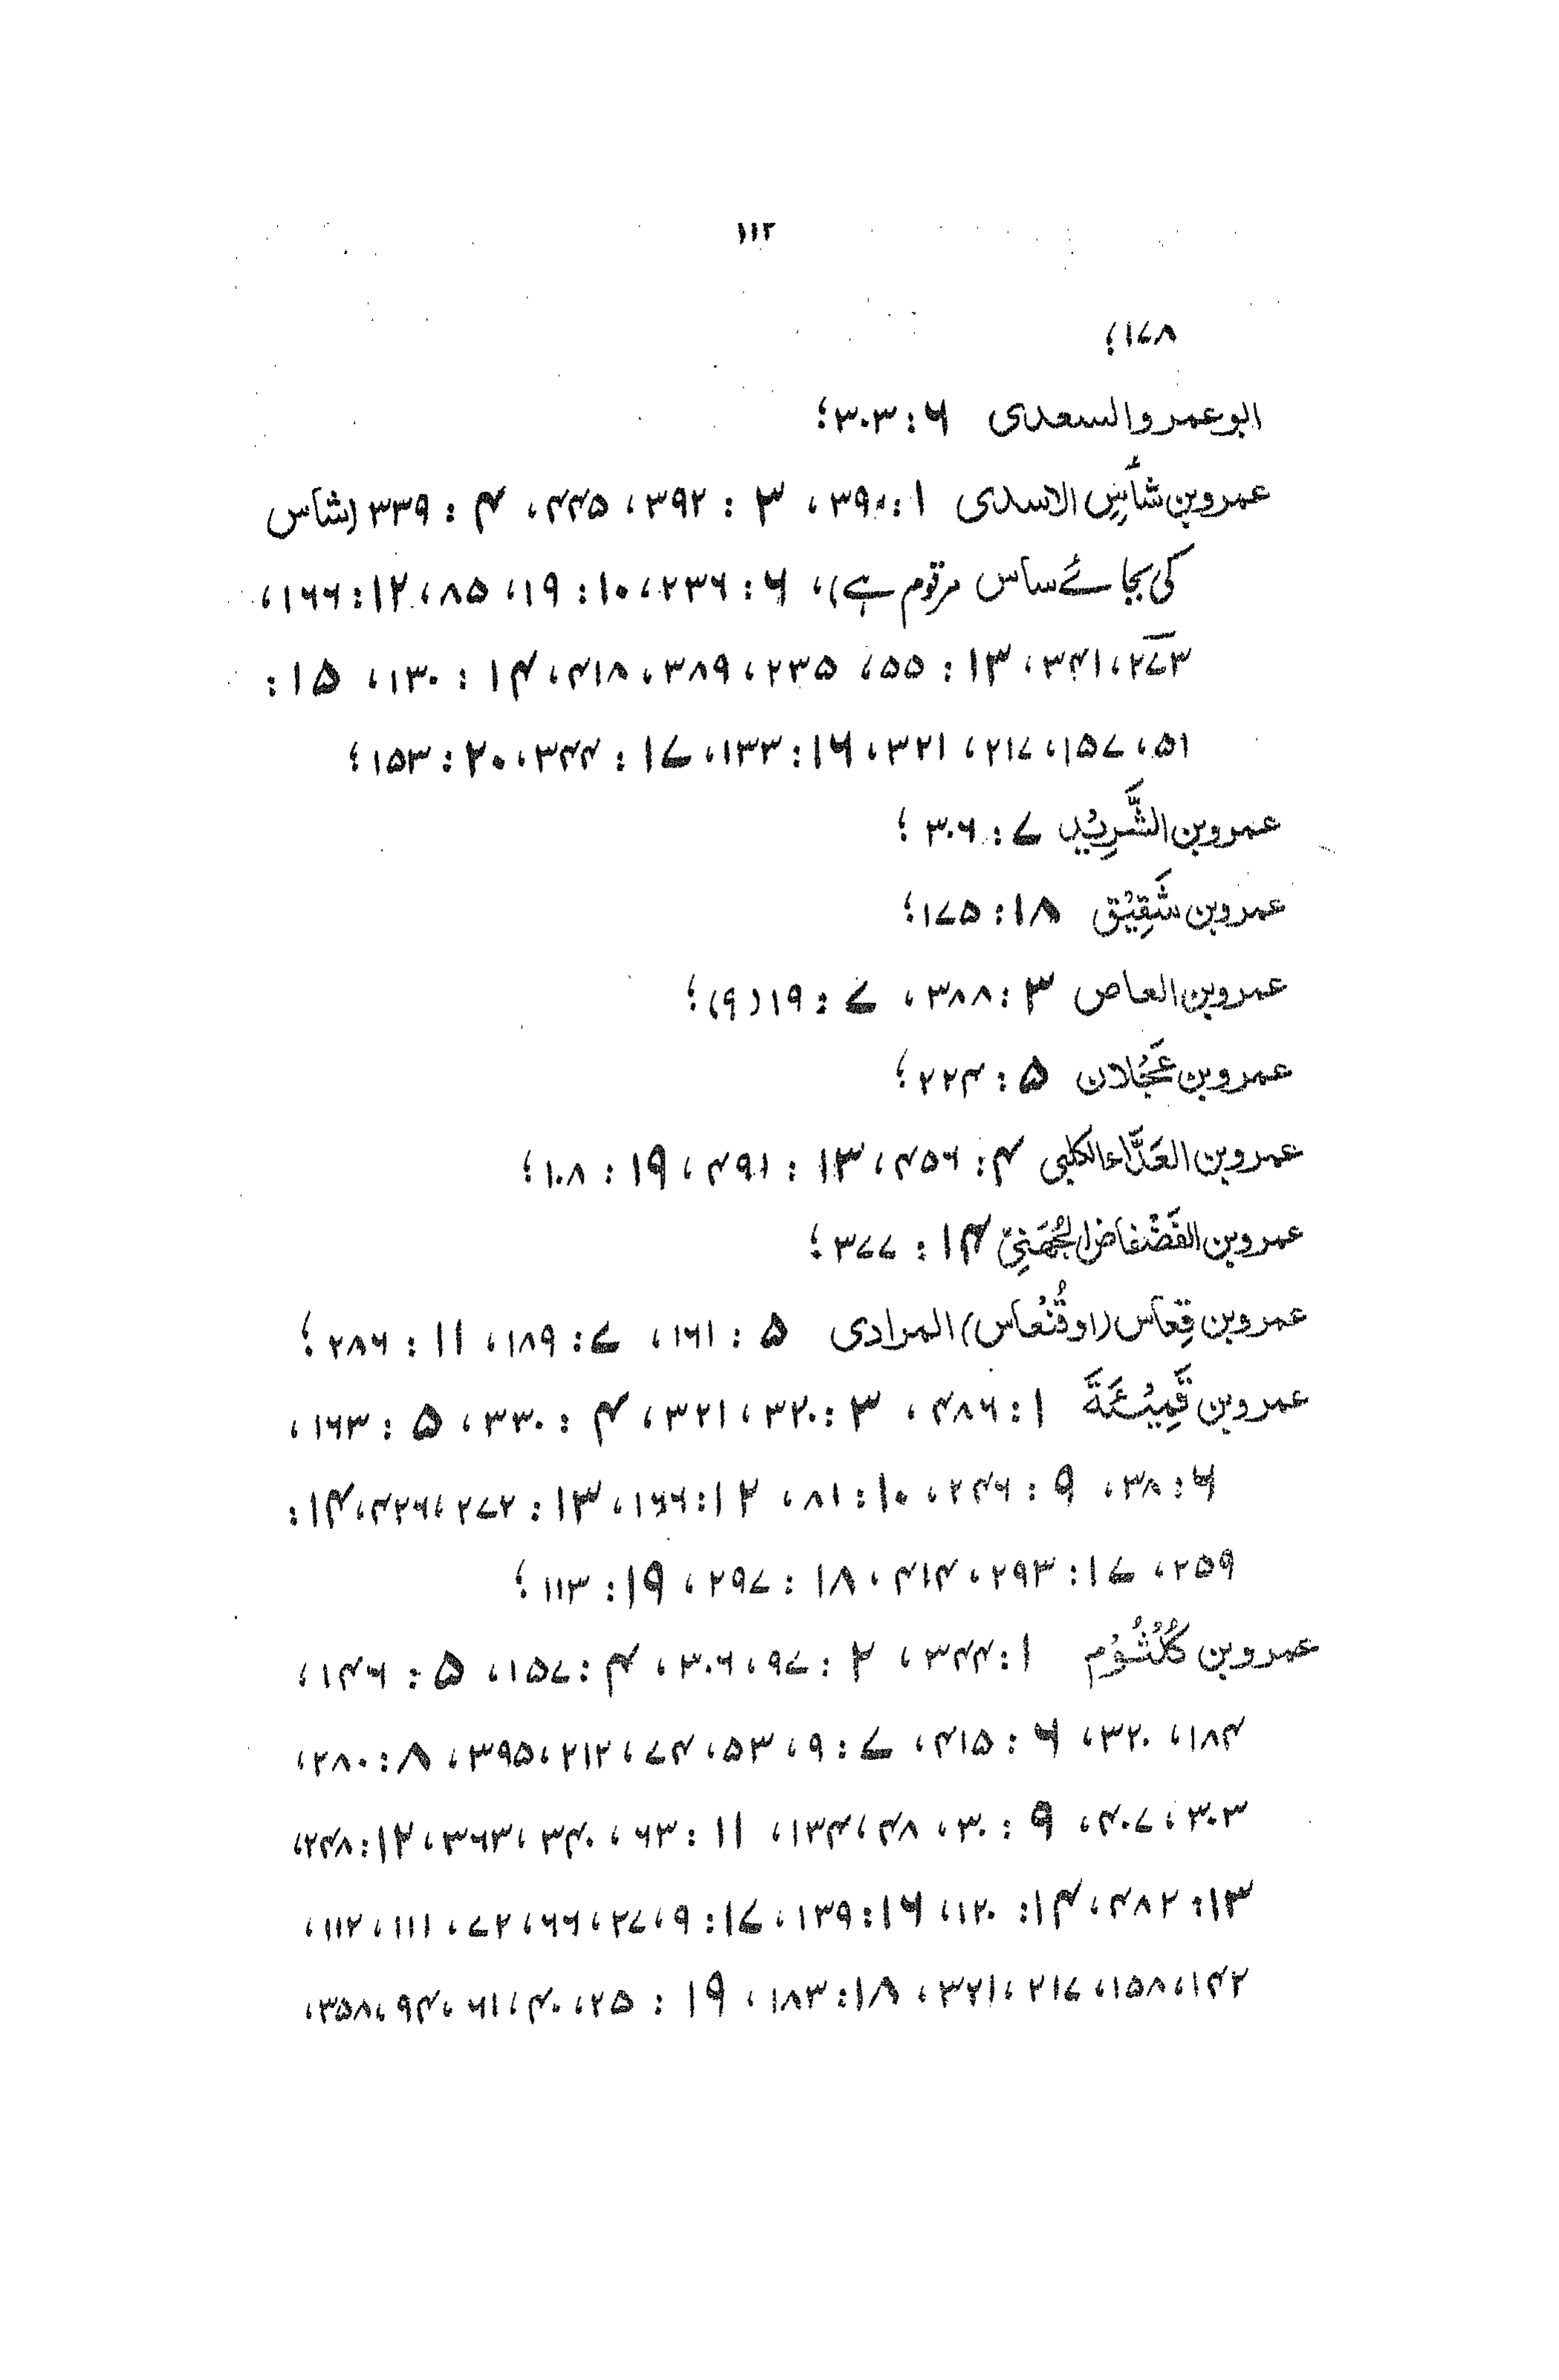 ۱۱۲
۱۷۸؛
ابو عمرو السعدی ۶: ۳۰۳؛
عمرو بن شَأسٍ الاسدی ۱: ۳۹۰، ۳: ۳۹۲، ۴۴۵، ۴: ۳۳۹ (شاس
کی بجائے ساس مرقوم ہے)، ۶: ۲۳۶، ۱۰: ۱۹، ۸۵، ۱۲: ۱۶۶،
۲۷۳، ۳۴۱، ۱۳: ۵۵، ۲۳۵، ۳۸۹، ۴۱۸، ۱۴: ۱۳۰، ۱۵:
۵۱، ۱۵۷، ۲۱۷، ۳۲۱، ۱۶: ۱۳۳، ۱۷: ۳۴۴، ۲۰: ۱۵۳؛
عمرو بن الشَّرِیْد ۷: ۳۰۶؛
عمرو بن شَقِیْق ۱۸: ۱۷۵؛
عمرو بن العاص ۳: ۳۸۸، ۷: ۱۹(۹)؛
عمرو بن عَجْلان ۵: ۲۲۴؛
عمرو بن العَدَّاء الکلبی ۴: ۴۵۶، ۱۳: ۴۹۱، ۱۹: ۱۰۸؛
عمرو بن القَضْفاض الجُهَنِیّ ۱۴: ۳۷۷؛
عمرو بن قِعاس (او قُنْعاس) المرادی ۵: ۱۶۱، ۷: ۱۸۹، ۱۱: ۲۸۶؛
عمرو بن قَمِیْئَةَ ۱: ۴۸۶، ۳: ۳۲۰، ۳۲۱، ۴: ۳۳۰، ۵: ۱۶۳،
۶: ۳۸، ۹: ۲۴۶، ۱۰: ۸۱، ۱۲: ۱۶۶، ۱۳: ۲۷۲، ۴۲۶، ۱۴:
۲۵۹، ۱۷: ۲۹۳، ۴۱۴، ۱۸: ۲۹۷، ۱۹: ۱۱۳؛
عمرو بن کُلْثُوْم ۱: ۳۴۴، ۲: ۹۷، ۳۰۶، ۴: ۱۵۷، ۵: ۱۴۶،
۱۸۴، ۳۲۰، ۶: ۴۱۵، ۷: ۹، ۵۳، ۷۴، ۲۱۲، ۳۹۵، ۸: ۲۸۰،
۳۰۳، ۴۰۷، ۹: ۳۰، ۴۸، ۱۳۴، ۱۱: ۶۳، ۳۴۰، ۳۶۳، ۱۲: ۲۴۸،
۱۳: ۴۸۲، ۱۴: ۱۲۰، ۱۶: ۱۳۹، ۱۷: ۹، ۲۷، ۶۶، ۷۲، ۱۱۱، ۱۱۲،
۱۴۲، ۱۵۸، ۲۱۷، ۳۲۱، ۱۸: ۱۸۳، ۱۹: ۲۵، ۴۰، ۶۱، ۹۴، ۳۵۸،